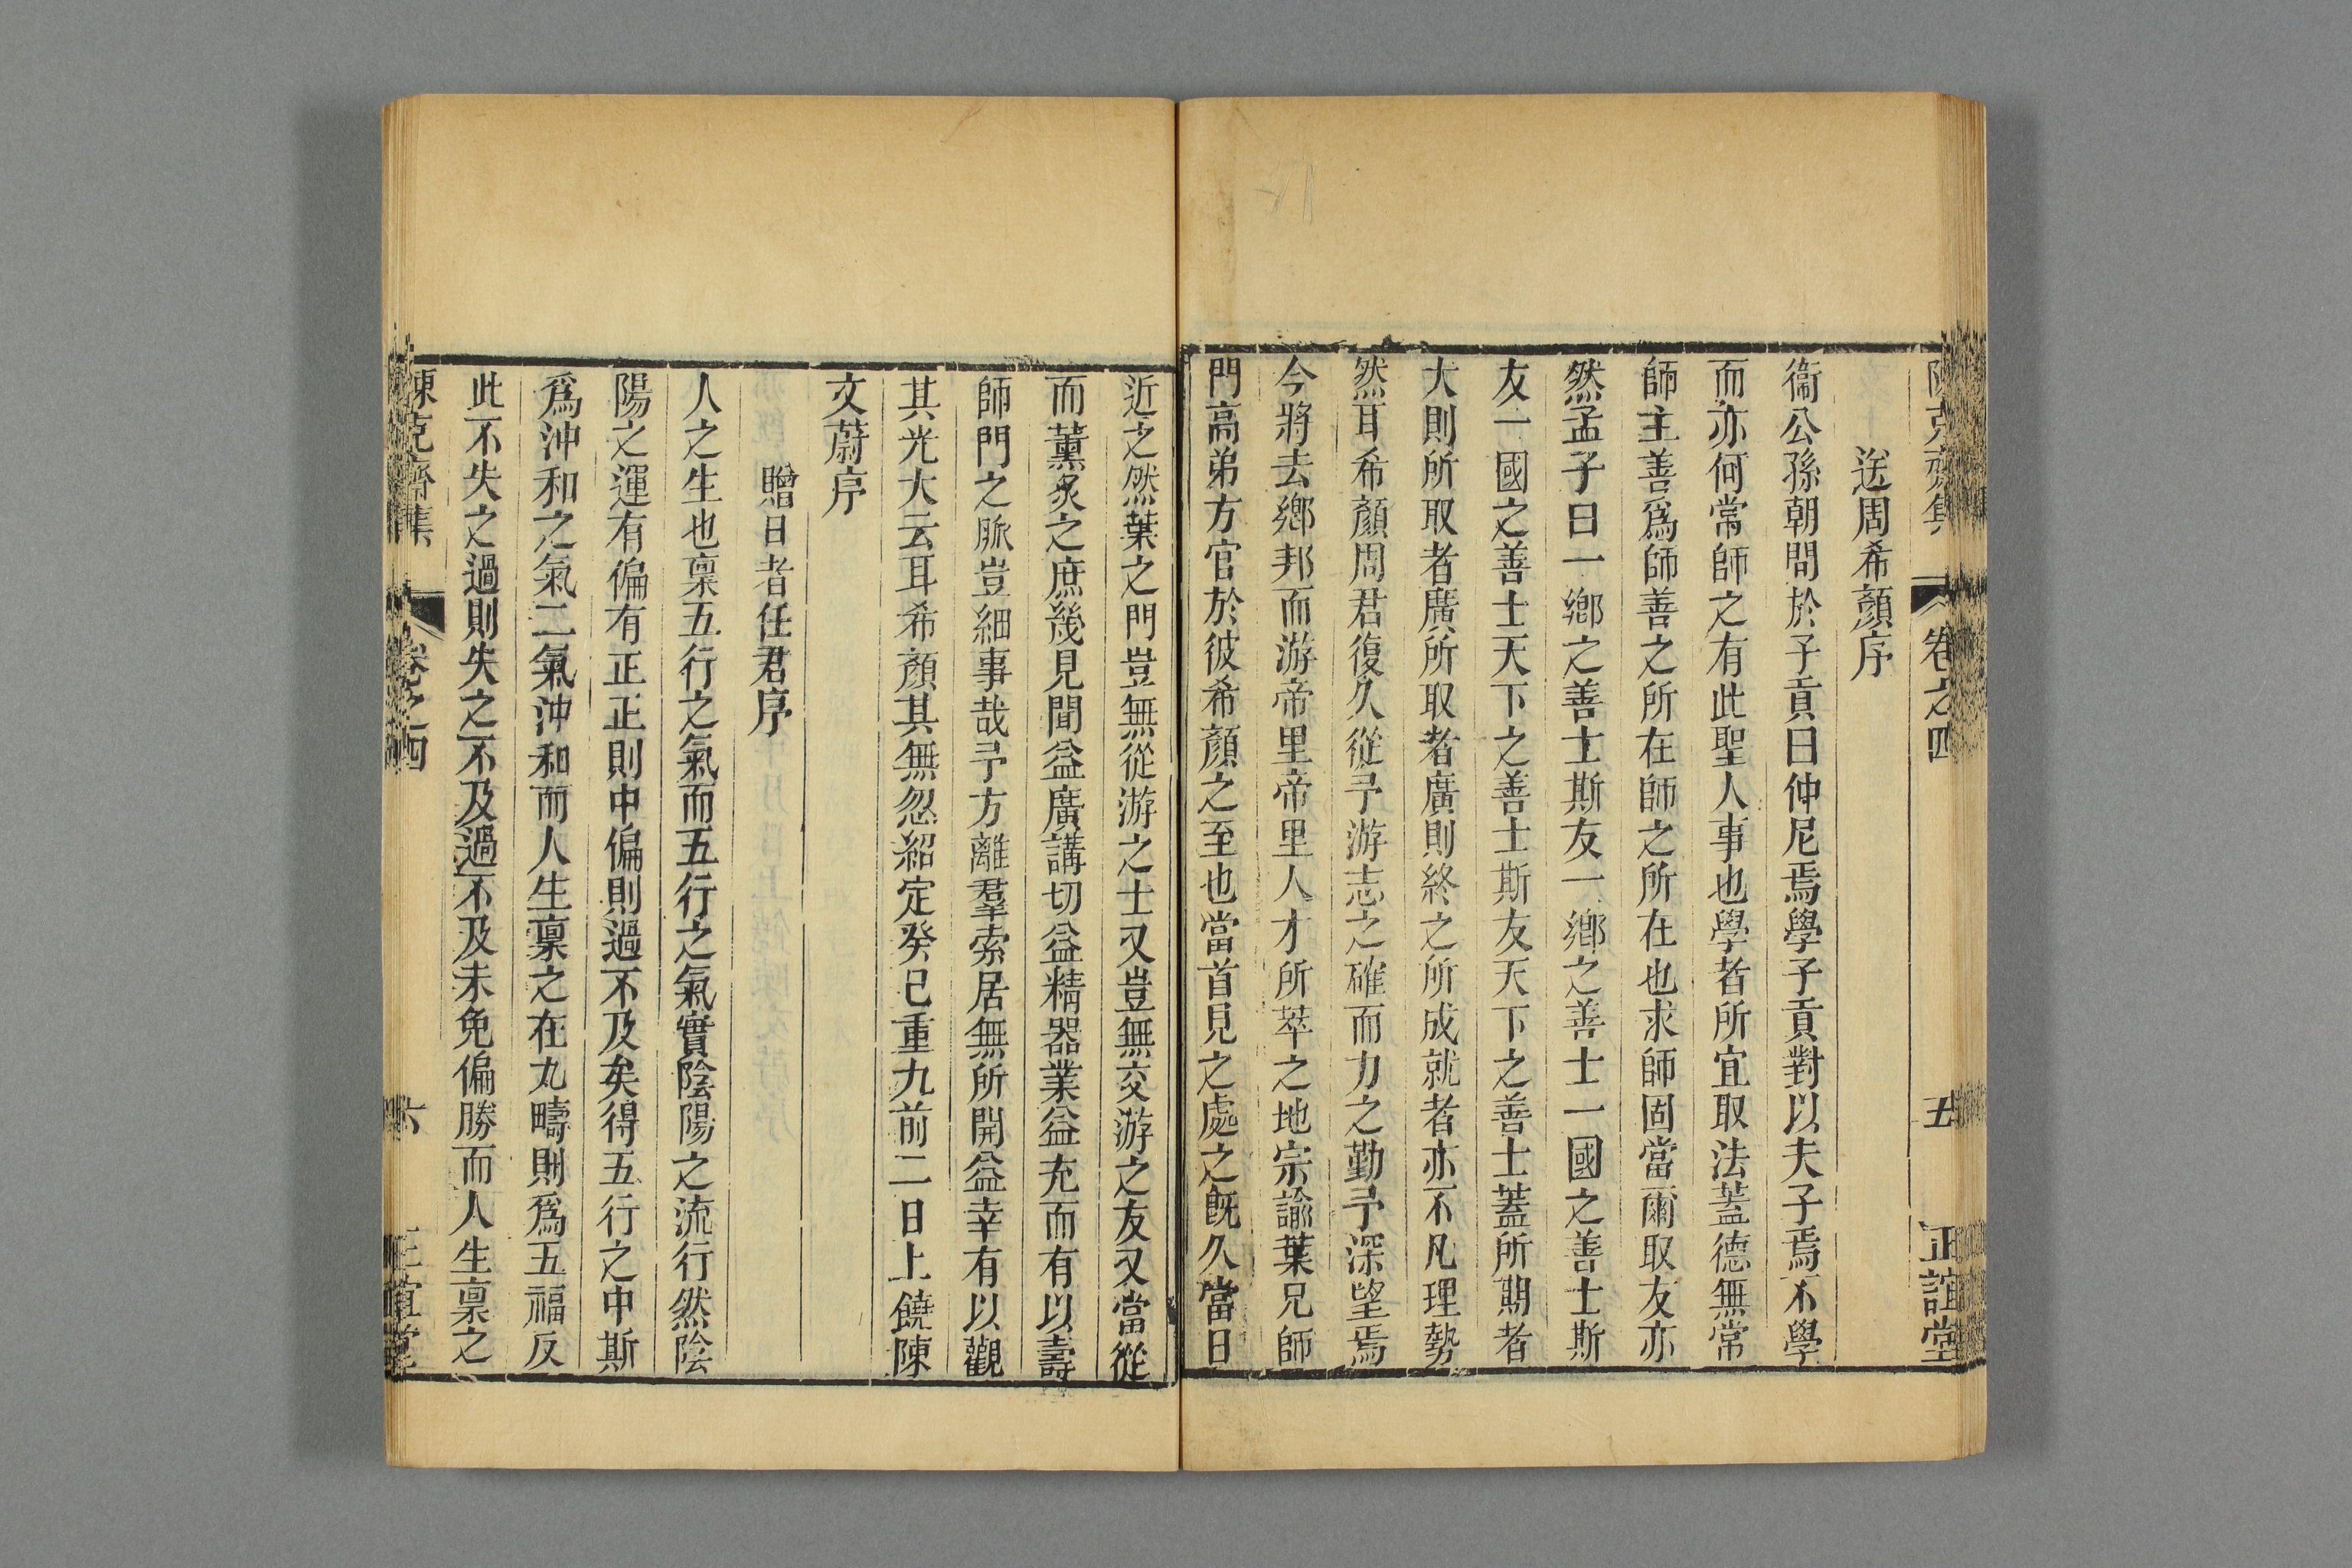 陳克齋集 卷之四 五 正誼堂
送周希顏序
衞公孫朝問於子貢曰仲尼焉學子貢對以夫子焉不學
而亦何常師之有此聖人事也學者所宜取法蓋德無常
師主善爲師善之所在師之所在也求師固當爾取友亦
然孟子曰一鄉之善士斯友一鄉之善士一國之善士斯
友一國之善士天下之善士斯友天下之善士蓋所期者
大則所取者廣所取者廣則終之所成就者亦不凡理勢
然耳希顏周君復久從予游志之確而力之勤予深望焉
今將去鄉邦而游帝里帝里人才所萃之地宗諭葉兄師
門高弟方官於彼希顏之至也當首見之處之旣久當日
近之然葉之門豈無從游之士又豈無交游之友又當從
而薰炙之庶幾見聞益廣講切益精器業益充而有以壽
師門之脈豈細事哉予方離羣索居無所開益幸有以觀
其光大云耳希顏其無忽紹定癸巳重九前二日上饒陳
文蔚序
贈日者任君序
人之生也稟五行之氣而五行之氣實陰陽之流行然陰
陽之運有偏有正正則中偏則過不及矣得五行之中斯
爲沖和之氣二氣沖和而人生稟之在九疇則爲五福反
此不失之過則失之不及過不及未免偏勝而人生稟之
陳克齋集 卷之四 六 正誼堂